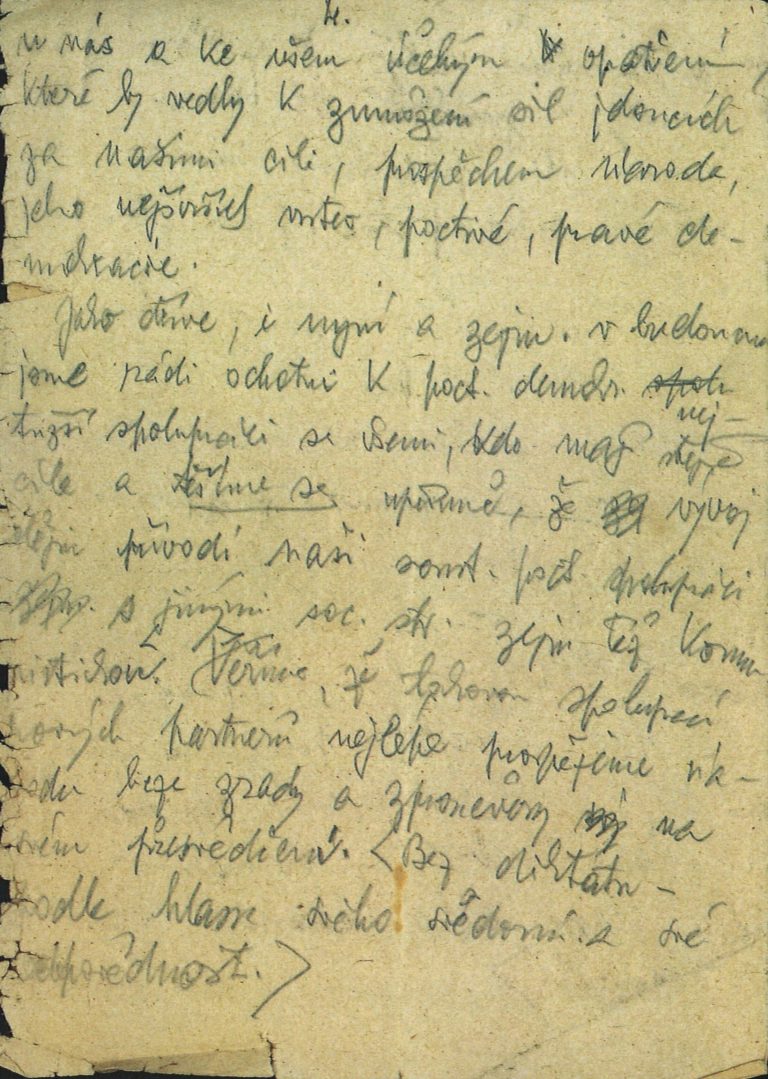 4.
u nás a ke všem účelným opatřením,
které by vedly k zmnožení sil jdoucích
za našimi cíli, prospěchem národa,
jeho nejširších vrstev, poctivé, pravé de-
mokracie.
Jako dříve, i nyní a zejm. v budoucnu
jsme rádi ochotni k poct. demokr. spolu
nej-
tužší spolupráci se všemi, kdo mají stejné
cíle a těšíme se upřímně, že vývoj
dějin přivodí naši soust. poct. spolupráci
s jinými soc. str. zejm též Komu
nistickou. Věříme, že takovou spoluprací
partnerů nejlépe prospějeme ná-
rodu beze zrady a zpronevěry na
svém přesvědčení. <Bez diktátu -
podle hlasu svého svědomí a své
odpovědnosti.>